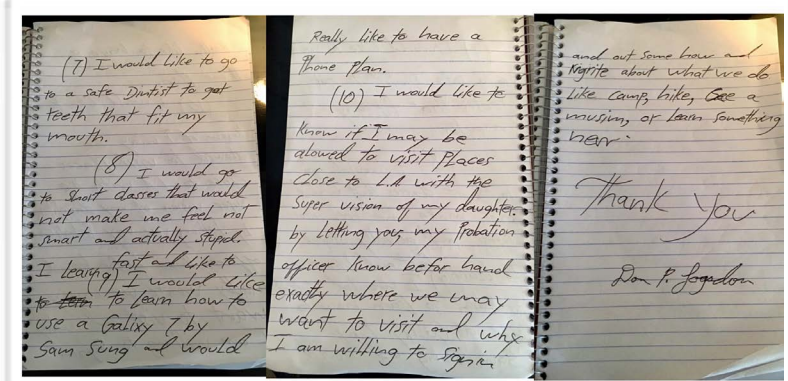 (7) I would like to go
to a safe Dintist to get
teeth that fit my
mouth.
(8) I would go
to short classes that would
not make me feel not
smart and actually stupid.
I learn fast and like to
(9) I would like
to learn how to
use a Galixy 7 by
Sam Sung and would
Really like to have a
Phone Plan.
(10) I would like to
Know if I may be
alowed to visit Places
close to L.A with the
Super vision of my daughter.
by Letting you, my Probation
officer Know befor hand
exactly where we may
want to visit and why
I am willing to sign in
and out some how and
Nigrite about what we do
Like camp, hike, a
musim, or Learn something
new.
Thank you
Don P.